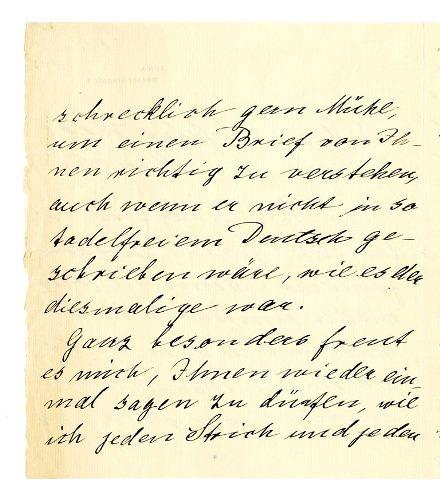 schrecklich gern Mühe,
um einen Brief von Ih-
nen richtig zu verstehen,
auch wenn er nicht in so
tadelfreiem Deutsch ge-
schrieben wäre, wie es der
diesmalige war.
Ganz besonders freut
es mich, Ihnen wieder ein-
mal sagen zu dürfen, wie
ich jeden Strich und jeden